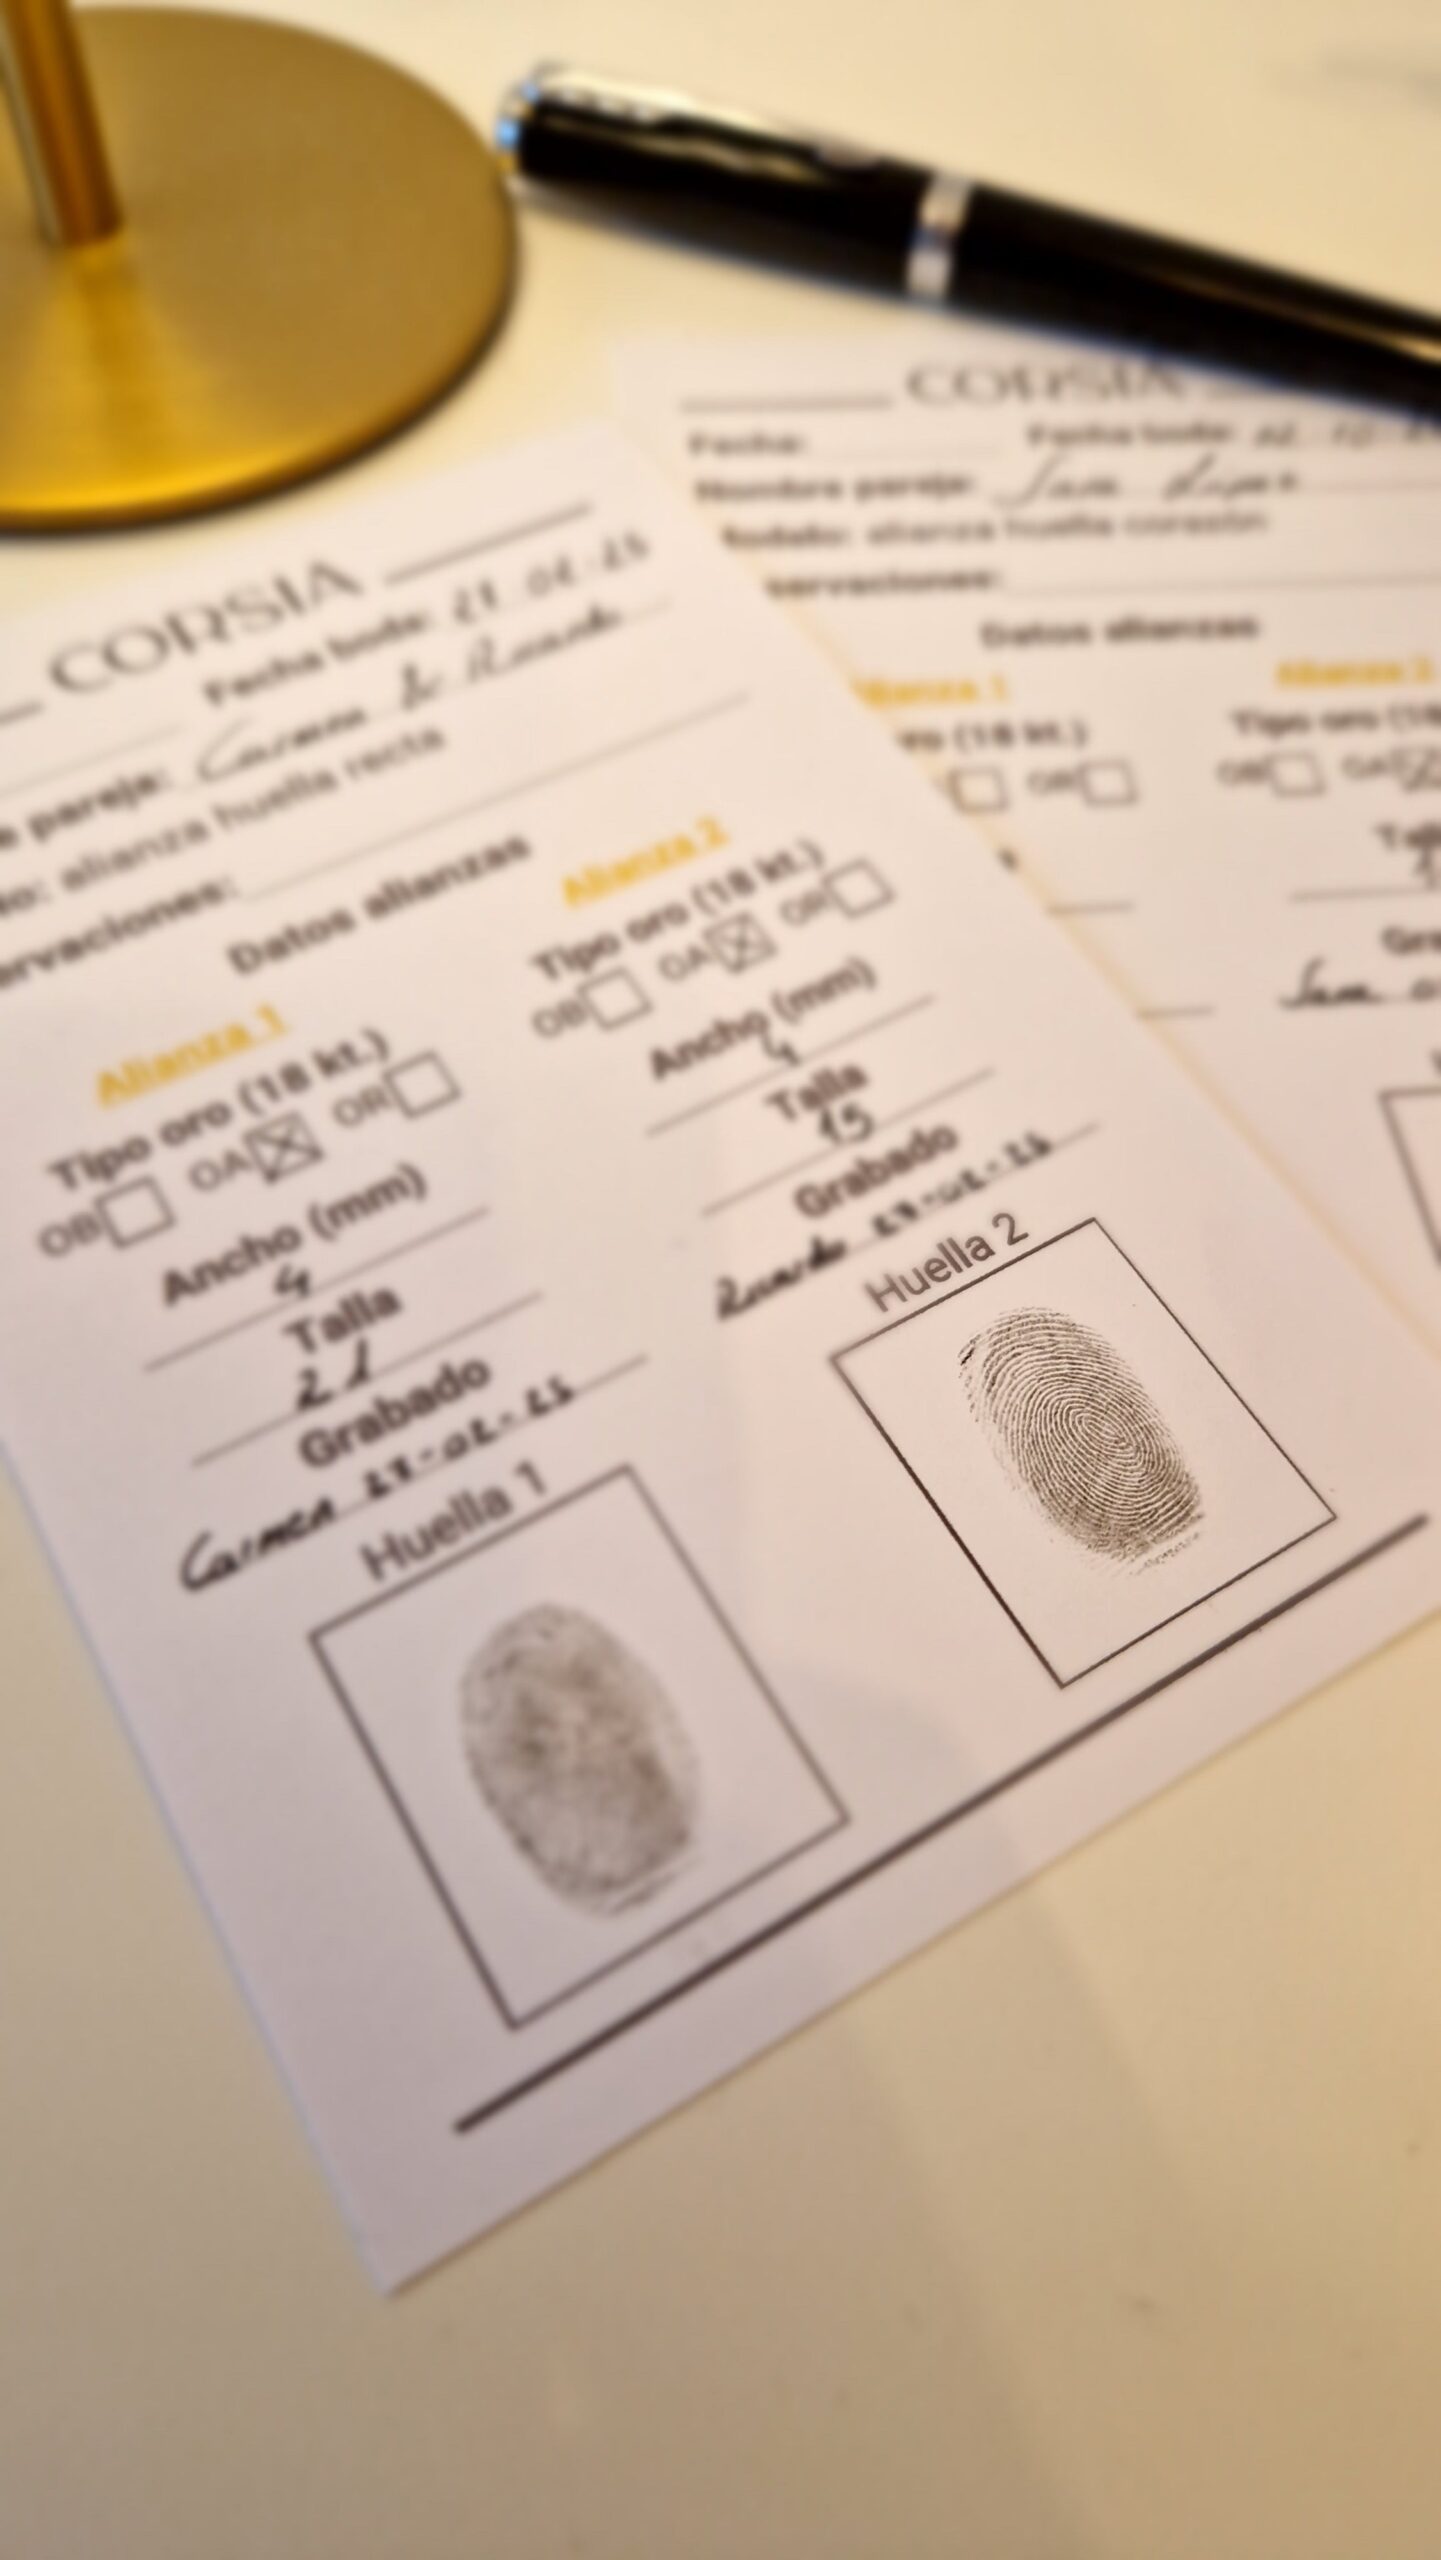 CORSIA
Fecha boda: 27-02-25
pareja: Carmen & Ricardo
alianza huella recta
ervaciones:
Datos alianzas
Alianza 1
Tipo oro (18 kt.)
OB OA OR
Ancho (mm)
4
Talla
21
Grabado
Carmen 27-02-25
Huella 1
Alianza 2
Tipo oro (18 kt.)
OB OA OR
Ancho (mm)
4
Talla
15
Grabado
Ricardo 27-02-25
Huella 2
CORSIA
Fecha: Fecha boda:
Nombre pareja:
alianza huella corazón
ervaciones:
Datos alianzas
Alianza 1
(18 kt.)
OR
Alianza 2
Tipo oro (18
OB OA